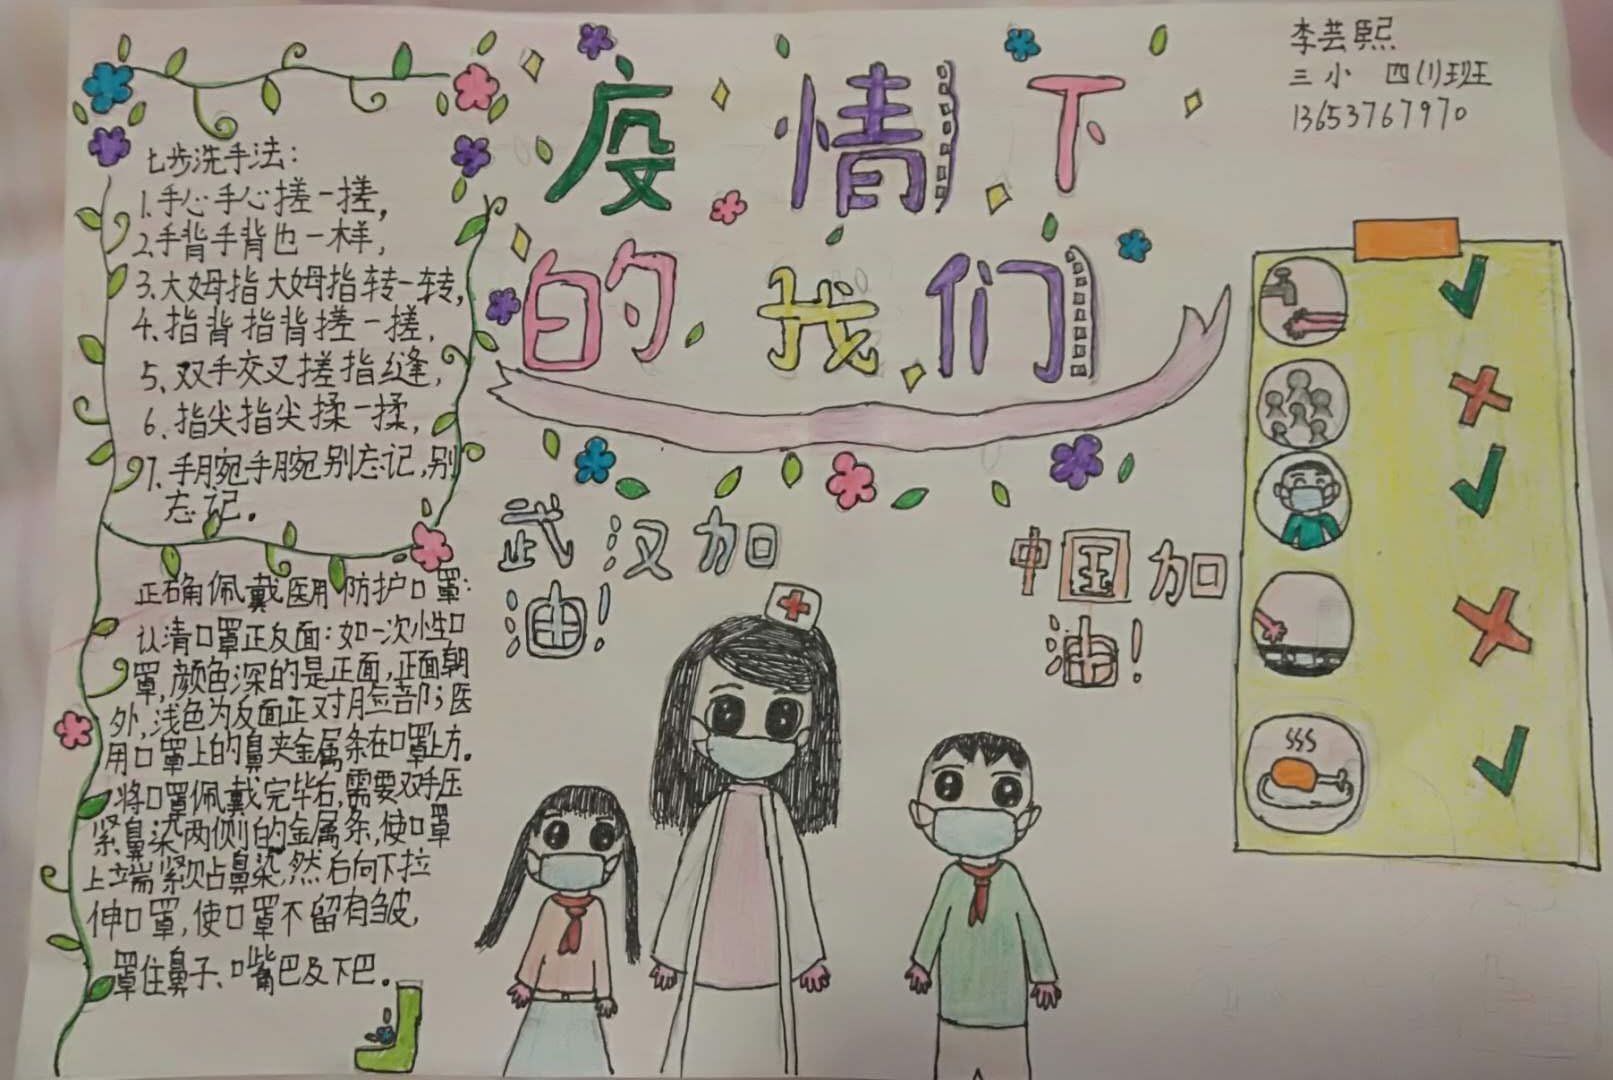 李芸熙
三小 四(1)班
13653767970
疫情下
的我们
七步洗手法：
1.手心手心搓一搓，
2.手背手背也一样，
3.大姆指大姆指转一转，
4.指背指背搓一搓，
5.双手交叉搓指缝，
6.指尖指尖揉一揉，
7.手腕手腕别忘记，别
忘记。
武汉加
油！
中国加
油！
正确佩戴医用防护口罩：
认清口罩正反面：如一次性口
罩，颜色深的是正面，正面朝
外，浅色为反面正对脸部；医
用口罩上的鼻夹金属条在口罩上方。
将口罩佩戴完毕后，需要双手压
紧鼻染两侧的金属条，使口罩
上端紧贴鼻染，然后向下拉
伸口罩，使口罩不留有皱，
罩住鼻子、口嘴巴及下巴。